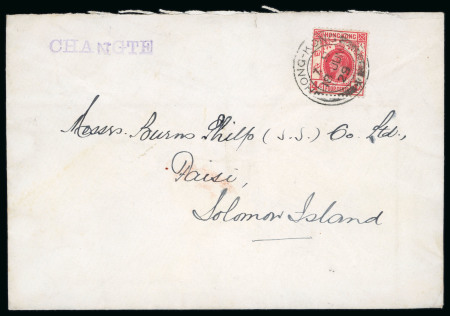 CHANGTE
HONGKONG
HONG-K
Messrs. Burns Philp (S.S.) Co. Ltd.,
Faisi,
Solomon Island